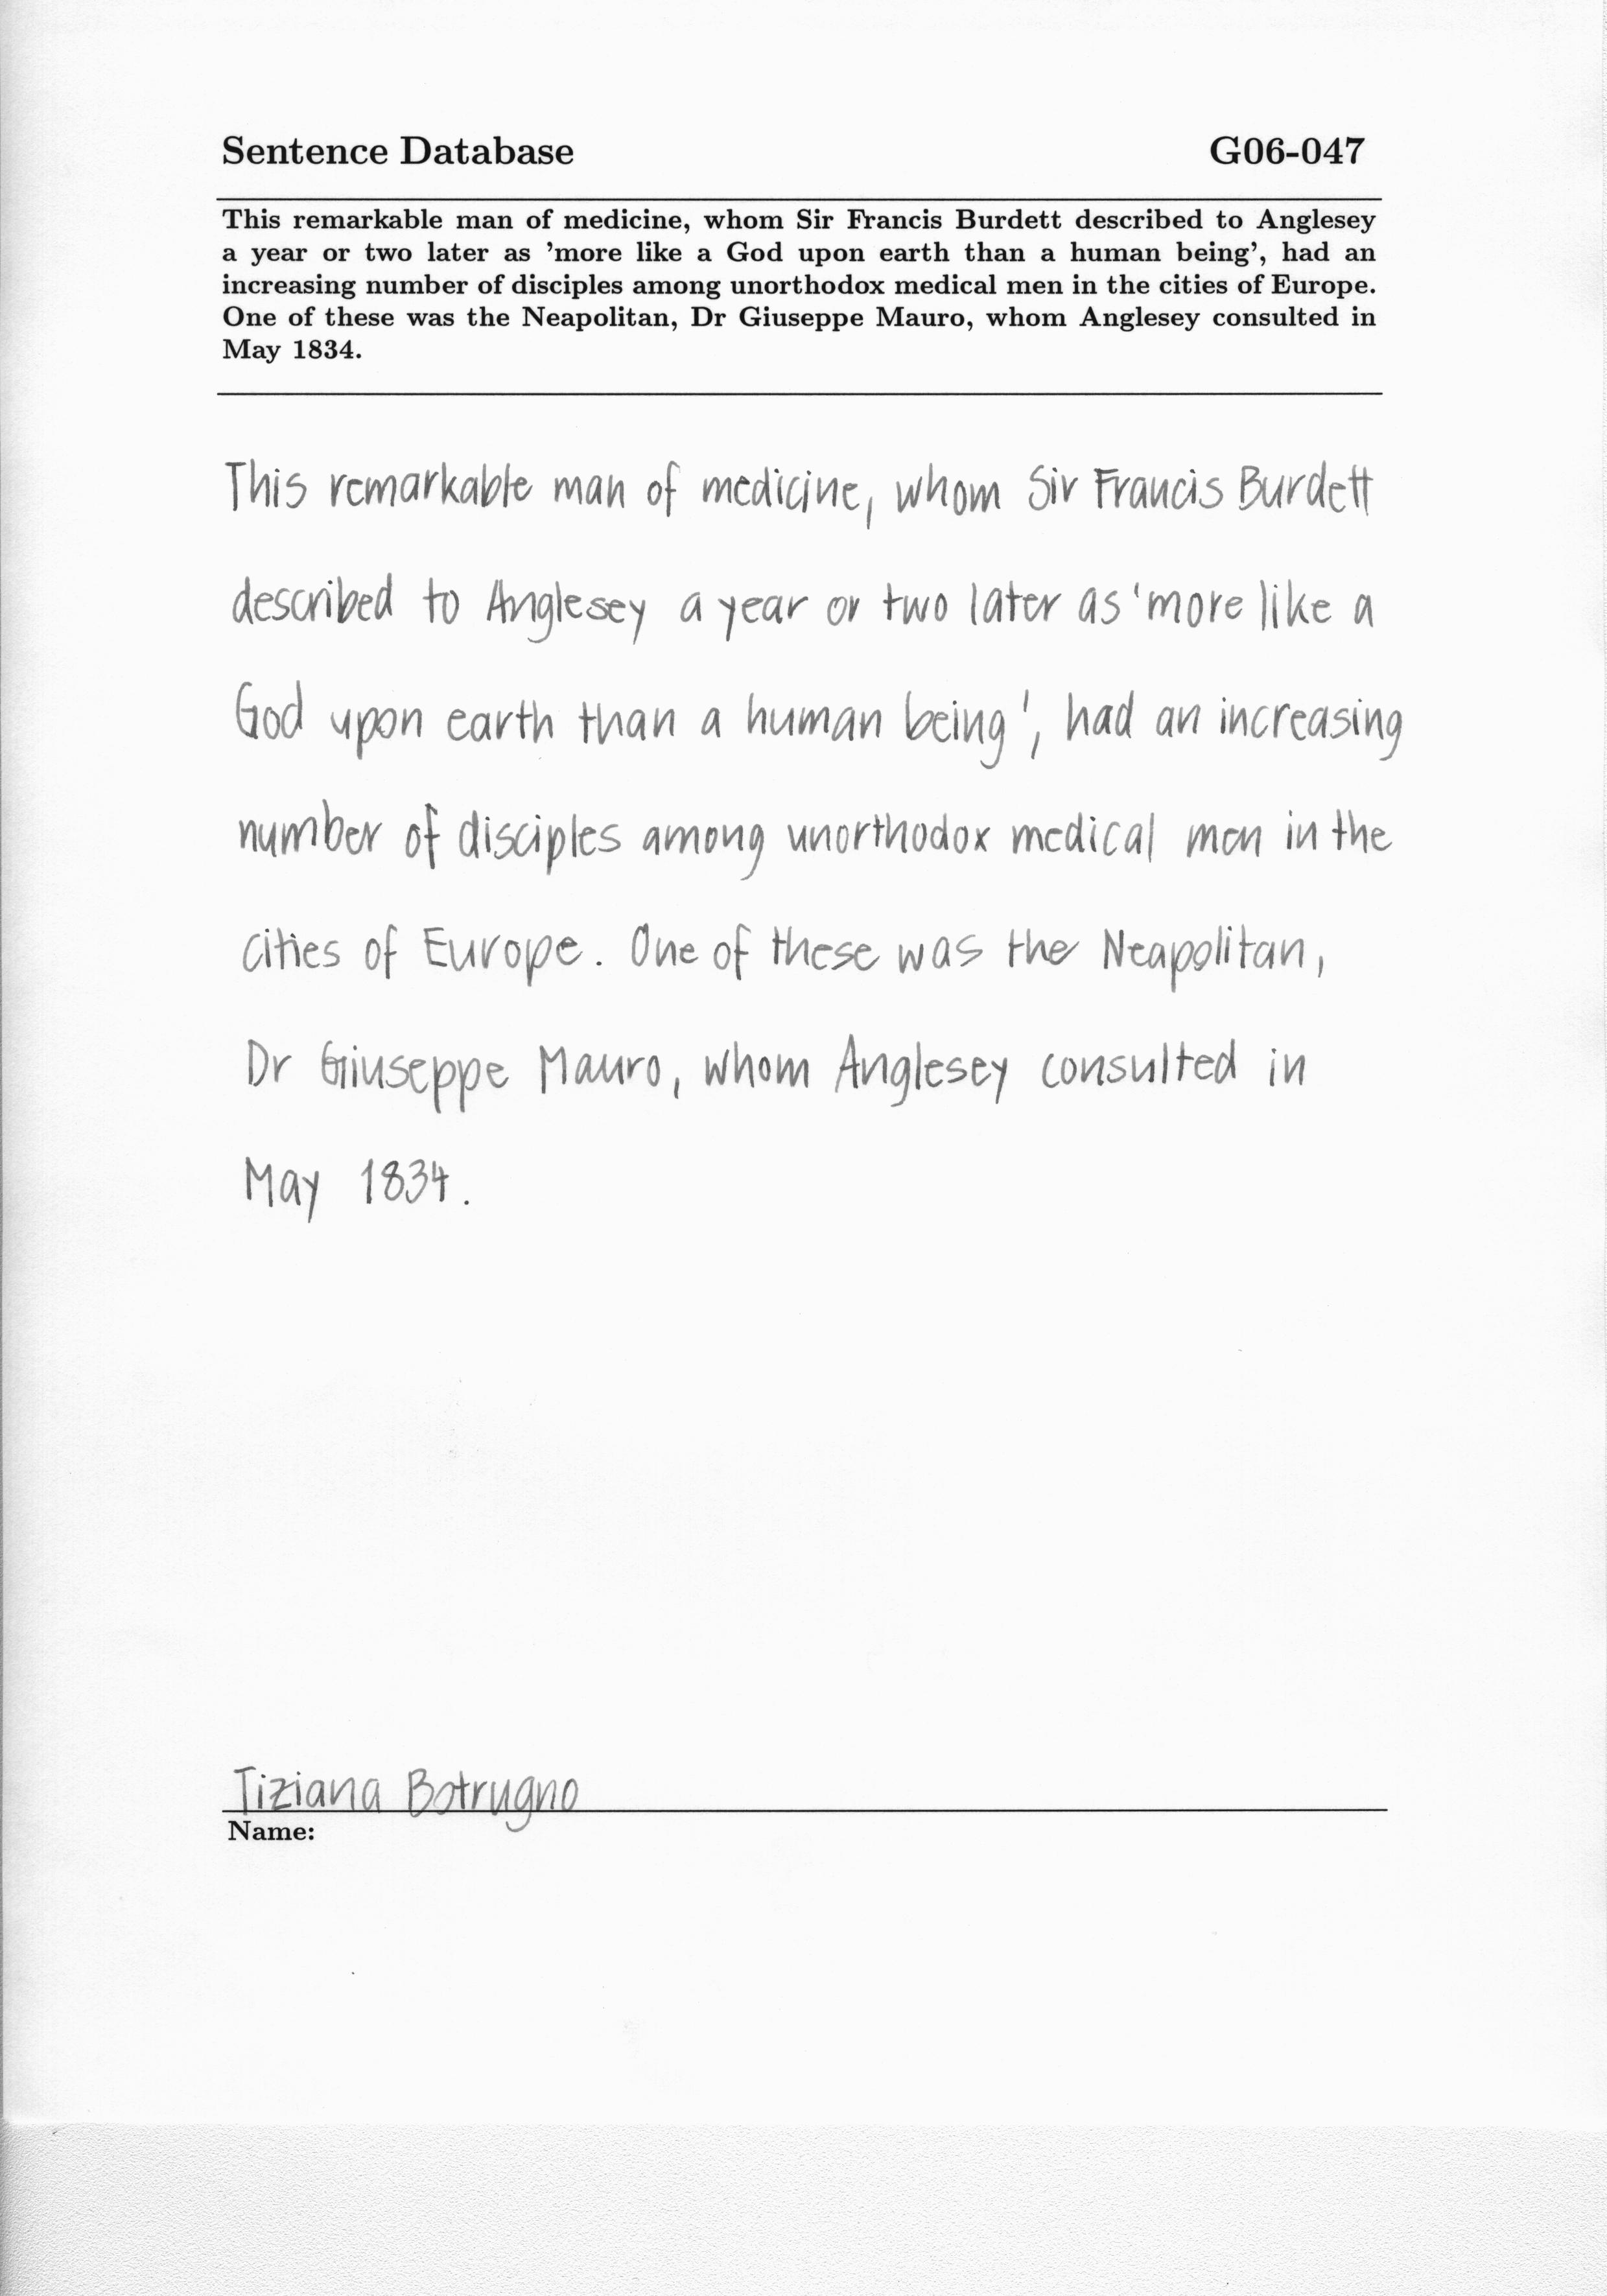 Sentence Database G06-047
This remarkable man of medicine, whom Sir Francis Burdett described to Anglesey
a year or two later as 'more like a God upon earth than a human being', had an
increasing number of disciples among unorthodox medical men in the cities of Europe.
One of these was the Neapolitan, Dr Giuseppe Mauro, whom Anglesey consulted in
May 1834.
This remarkable man of medicine, whom Sir Francis Burdett
described to Anglesey a year or two later as 'more like a
God upon earth than a human being', had an increasing
number of disciples among unorthodox medical men in the
cities of Europe. One of these was the Neapolitan,
Dr Giuseppe Mauro, whom Anglesey consulted in
May 1834.
Tiziana Botrugno
Name: